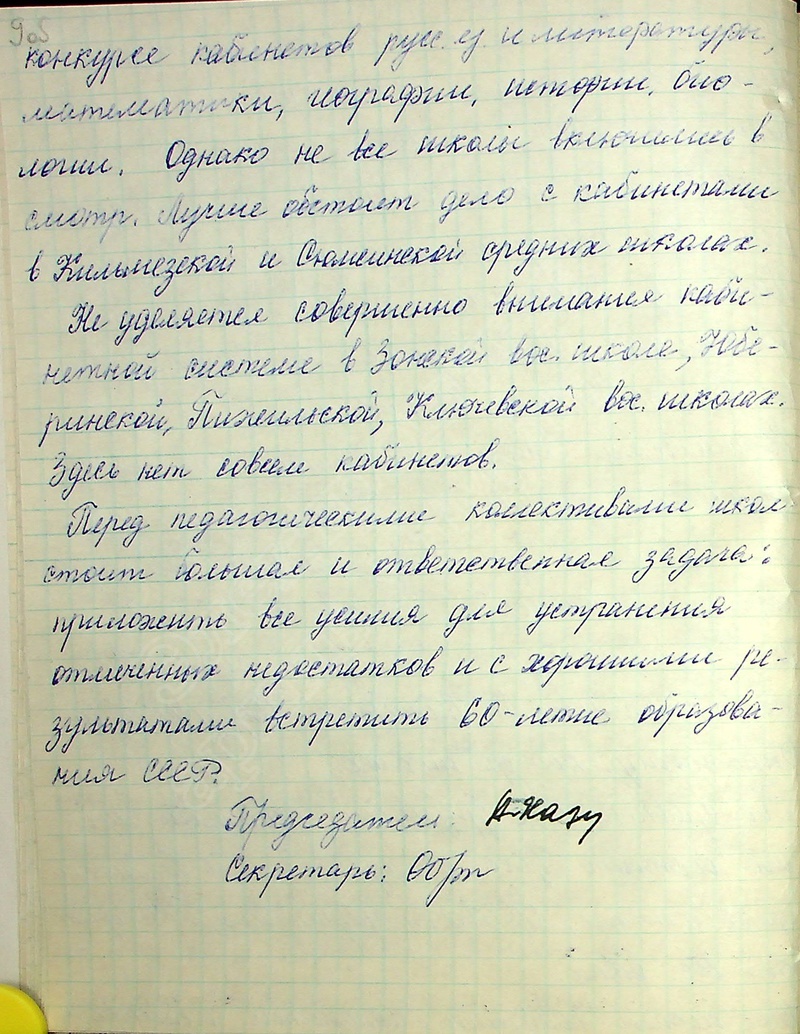 конкурсе кабинетов русс. яз. и литературы,
математики, географии, истории, био-
логии. Однако не все школы включились в
смотр. Лучше обстоит дело с кабинетами
в Кильмезской и Сюмсинской средних школах.
Не уделяется совершенно внимания каби-
нетной системе в Зонской вос. школе, Юбе-
ринской, Пижильской, Ключевской вос. школах.
Здесь нет совсем кабинетов.
Перед педагогическими коллективами школ
стоит большая и ответственная задача:
приложить все усилия для устранения
отмеченных недостатков и с хорошими ре-
зультатами встретить 60-летие образова-
ния СССР.
Председатель:
Секретарь: